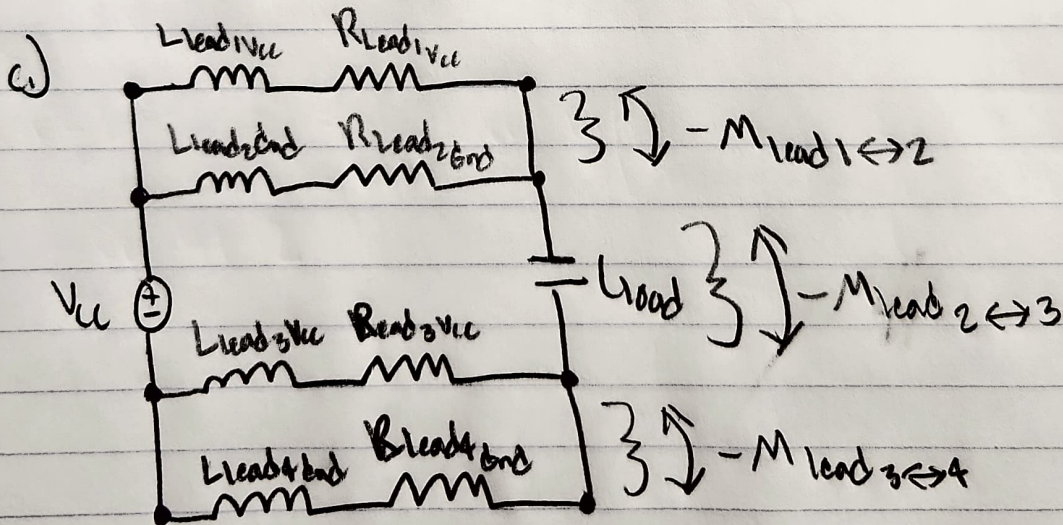 c)
Llead1Vcc RLead1Vcc
- Mlead1↔2
Llead2Gnd RLead2Gnd
Vcc
+
-
Cload
- Mlead2↔3
Llead3Vcc Rlead3Vcc
Llead4Gnd Rlead4Gnd
- Mlead3↔4